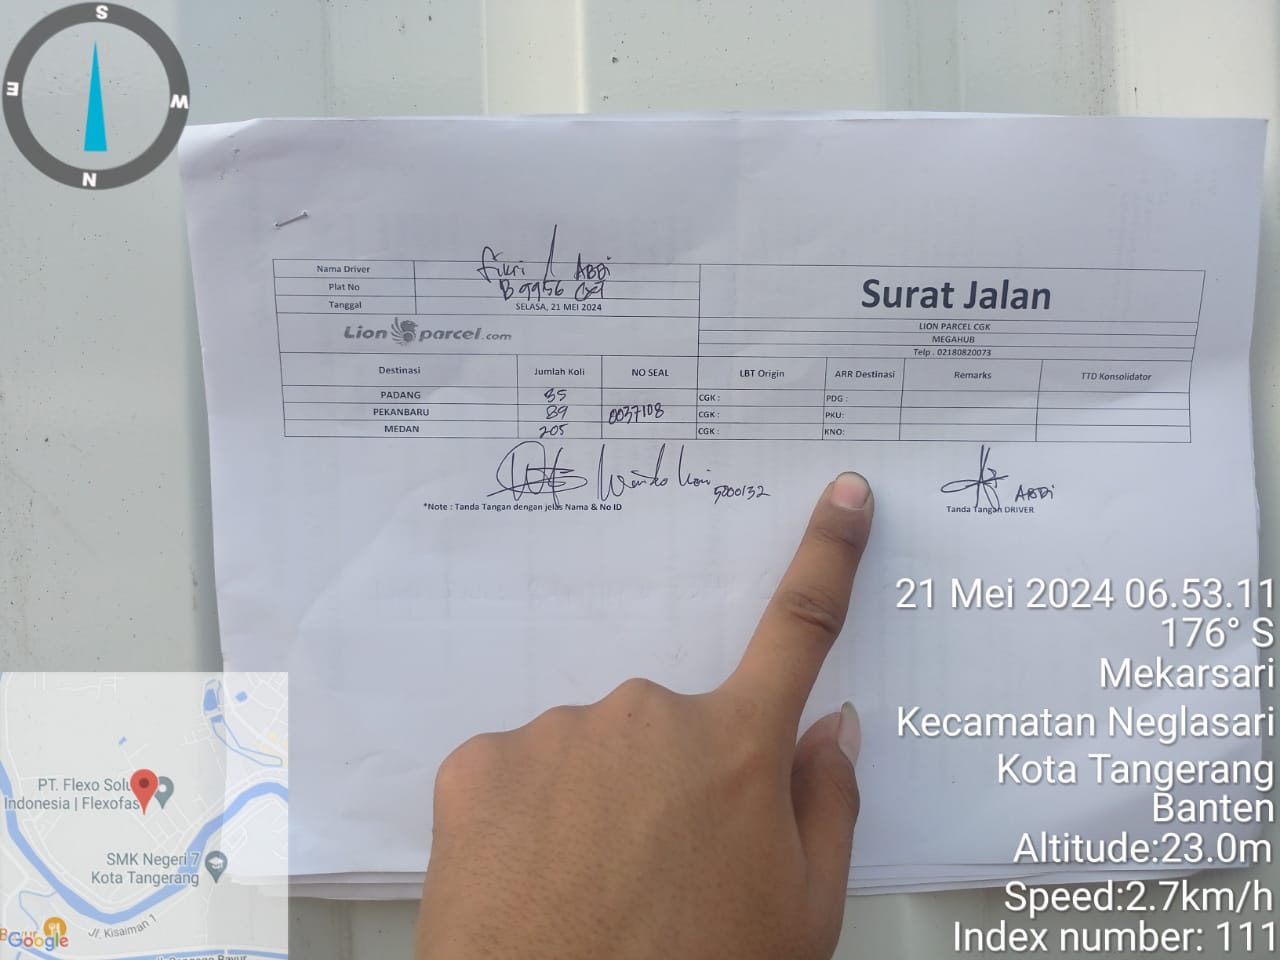 S
E
W
N
Fikri / ABDi
Nama Driver
Plat No
B 9956
Tanggal
SELASA, 21 MEI 2024
Surat Jalan
Lion parcel.com
LION PARCEL CGK
MEGAHUB
Telp . 02180820073
Destinasi Jumlah Koli NO SEAL LBT Origin ARR Destinasi Remarks TTD Konsolidator
PADANG CGK : PDG :
PEKANBARU 89 0037108 CGK : PKU:
MEDAN 205 CGK : KNO:
5000132
ABDi
*Note : Tanda Tangan dengan jelas Nama & No ID
Tanda Tangan DRIVER
21 Mei 2024 06.53.11
176° S
Mekarsari
Kecamatan Neglasari
Kota Tangerang
Banten
Altitude:23.0m
Speed:2.7km/h
Index number: 111
PT. Flexo Solu
Indonesia | Flexofas
SMK Negeri 7
Kota Tangerang
Jl. Kisaiman 1
Google